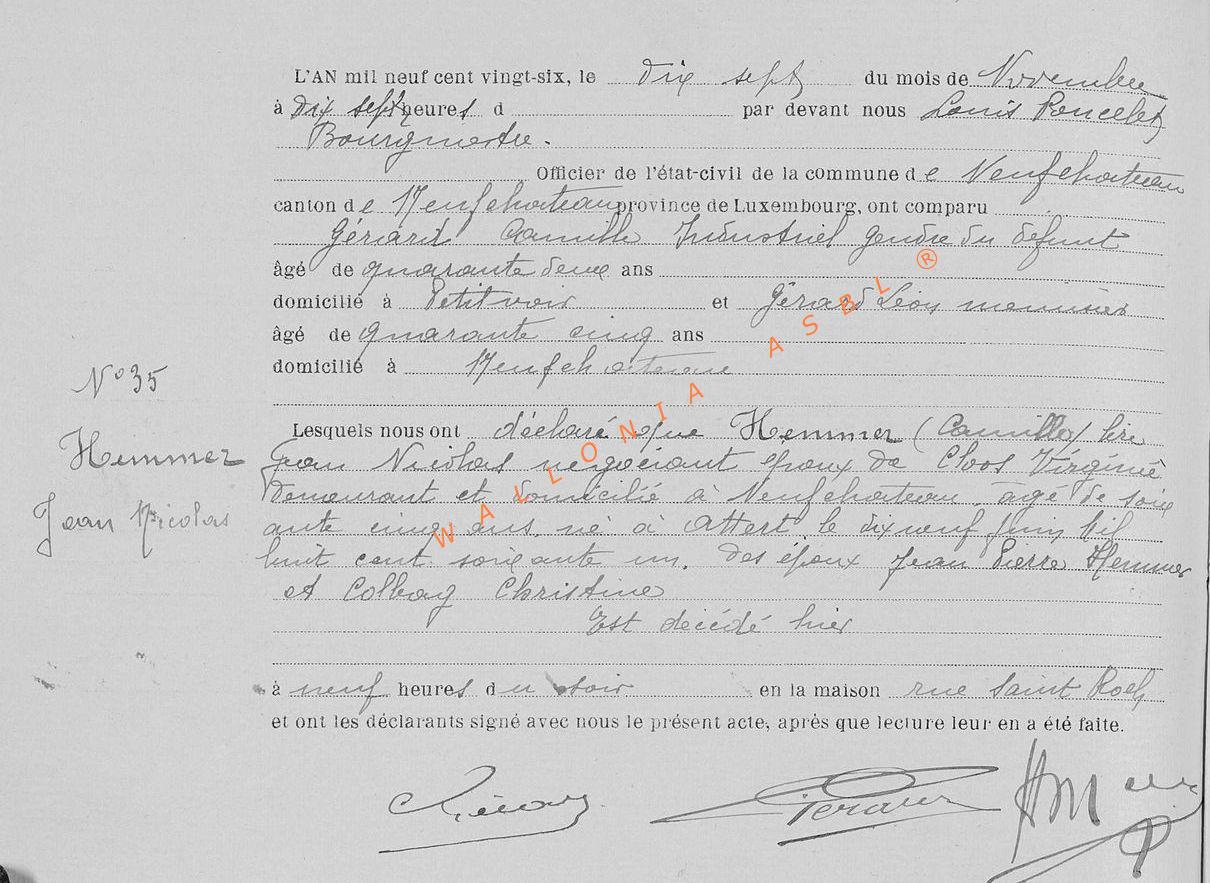 L'AN mil neuf cent vingt-six, le dix sept du mois de Novembre
à dix sept heures d par devant nous Louis Poncelet
Bourgmestre.
Officier de l'état-civil de la commune de Neufchateau
canton de Neufchateau province de Luxembourg, ont comparu
Gérard Camille Industriel gendre du défunt
âgé de quarante deux ans
domicilié à Petitvoir et Gérard Léon menuisier
âgé de quarante cinq ans
domicilié à Neufchateau
N° 35
Lesquels nous ont déclaré que Hemmer (Camille)
Hemmer
Jean Nicolas négociant époux de Cloos Virginie
demeurant et domicilié à Neufchateau âgé de soix
Jean Nicolas
ante cinq ans, né à Attert, le dix neuf juin mil
huit cent soixante un, des époux Jean Pierre Hemmer
et Colbag Christine
Est décédé hier
à neuf heures du soir en la maison rue Saint Roch
et ont les déclarants signé avec nous le présent acte, après que lecture leur en a été faite.
WALLONIA ASBL ®